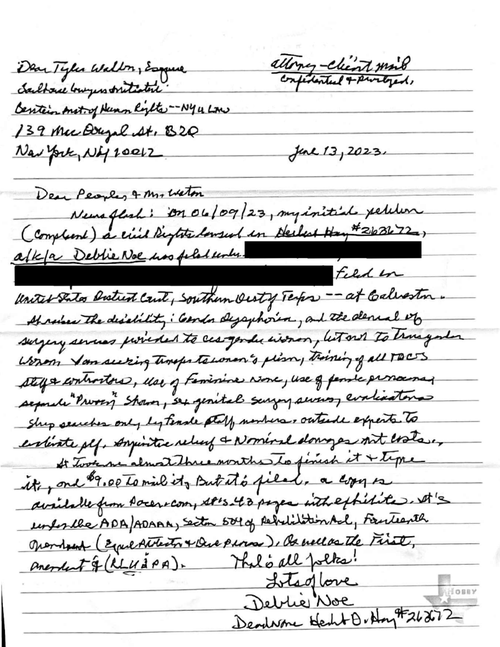 Dear Tyler Walton, Esquire
attorney-Client mail
Confidential & Privileged.
Jailhouse Lawyers Initiative
Bernstein Inst. of Human Rights--NYU Law
139 Mac Dougal St. B20
New York, NY 10012
June 13, 2023.
Dear People, & Mr. Walton
News flash: On 06/09/23, my initial petition
(Complaint) a Civil Rights lawsuit in Herbert Hay #263672,
a/k/a Debbie Noe was filed under
Filed in
United States District Court, Southern Dist of Texas -- at Galveston.
It raises the disability: Gender Dysphoria, and the denial of
surgery services provided to cis-gender women, but not to Transgender
women. I am seeking transfer to women's prison, training of all TDCJ
staff & contractors, use of Feminine Name, use of female pronouns,
separate "Privacy" Shower, sex genital surgery, evaluations
strip searches only by Female staff members, outside experts to
evaluate plf. Injunctive relief & Nominal damages and Costs.
It took me almost three months to finish it & type
it, and $9.00 to mail it, But it's filed. a copy is
available from Pacer.com, It's 43 pages with exhibits. It's
under the ADA/ADAAA, Section 504 of Rehabilitation Act, Fourteenth
Amendment (Equal Protection & Due Process). As well as the First,
Amendment & (RLUIPA).
That's all folks!
Lots of love
Debbie Noe
Deadname Herbert D. Hay #263672
HOBBY